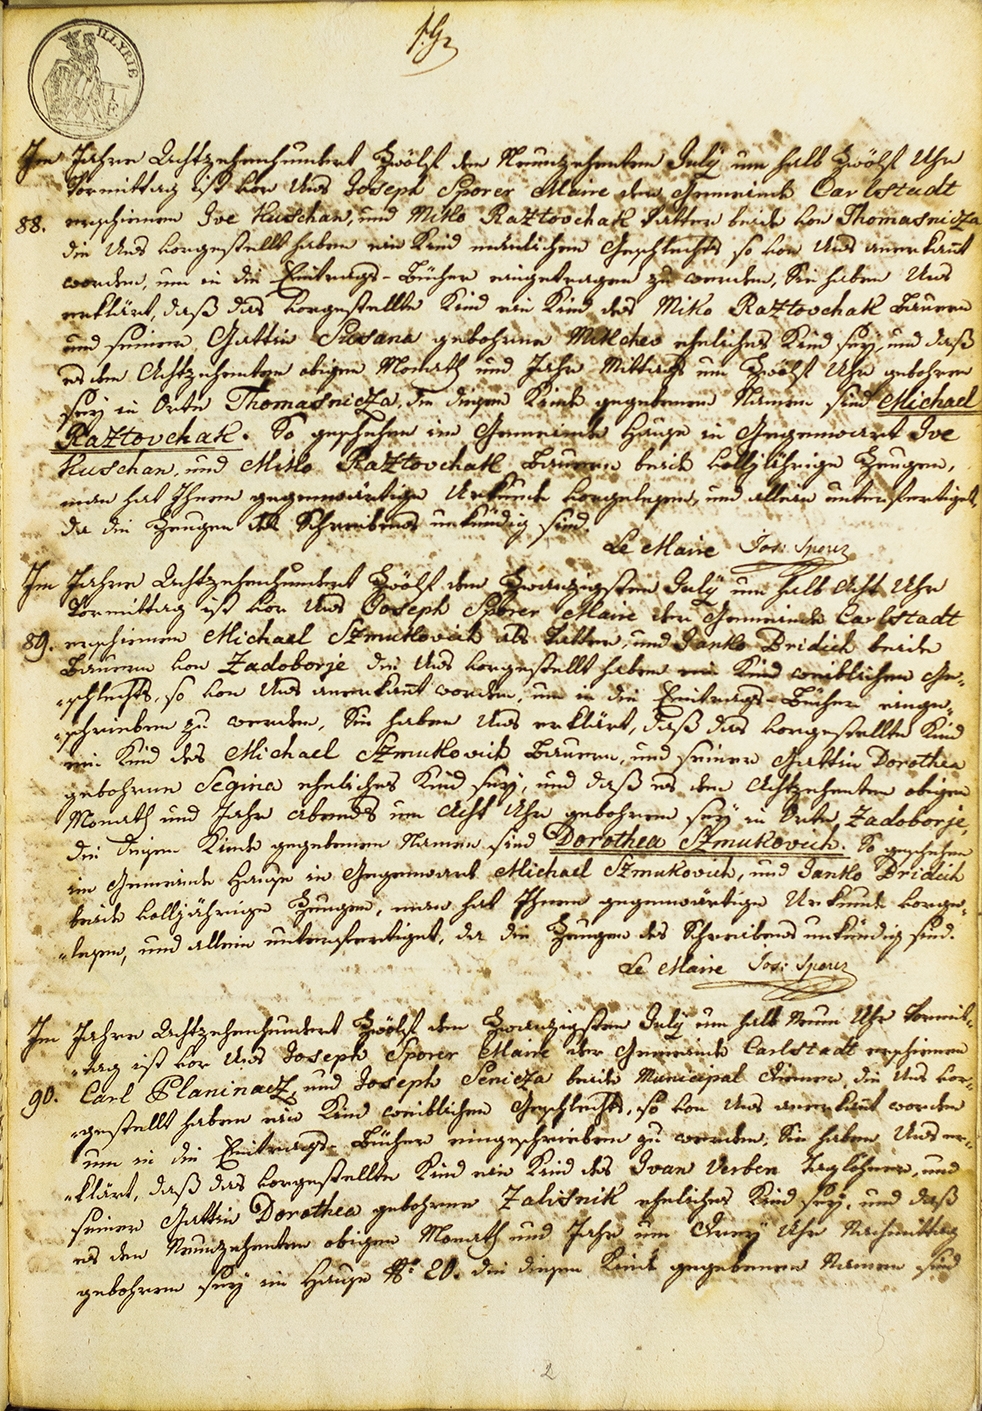 ILLYRIE
Im Jahre Achtzehenhundert Zwölf den Neunzehenten July um halb Zwölf Uhr
Vormittag ist vor Uns Joseph Sporer Maire der Gemeinde Carlstadt
88. erschienen Ive Kuschan, und Miko Raztovchak Vatter beide von Thomasnicza
die Uns vorgestellt haben ein Kind mänlichen Geschlechts so von Uns anerkant
worden, um in die Eintrags-Bücher eingetragen zu werden, Sie haben Uns
erklärt, daß das vorgestellte Kind ein Kind des Miko Raztovchak Bauern
und seiner Gattin Susana gebohrne Milchev eheliches Kind sey, und daß
es den Achtzehenten obigen Monath und Jahr Mittags um Zwölf Uhr gebohren
sey in Orte Thomasnicza, die diesem Kinde gegebenen Namen sind Michael
Raztovchak. So geschehen im Gemeinde Hause in Gegenwart Ive
Kuschan, und Miko Raztovchak Bauern beide volljährige Zeugen,
man hat Ihnen gegenwärtige Urkunde vorgelesen, und allein unterfertiget,
da die Zeugen des Schreibens unkündig sind.
Le Maire Jos: Sporer
Im Jahre Achtzehenhundert Zwölf den Zwanzigsten July um halb Acht Uhr
Vormittag ist vor Uns Joseph Sporer Maire der Gemeinde Carlstadt
89. erschienen Michael Szmukovich als Vatter, und Janko Dridich beide
Bauern von Zadoborje die Uns vorgestellt haben ein Kind weiblichen Ge-
schlechts, so von Uns anerkant worden, um in die Eintrags-Bücher einge-
schrieben zu werden, Sie haben Uns erklärt, daß das vorgestellte Kind
ein Kind des Michael Szmukovich Bauern, und seiner Gattin Dorothea
gebohrne Segina eheliches Kind sey, und daß es den Achtzehenten obigen
Monath und Jahr Abends um Acht Uhr gebohren sey in Orte Zadoborje,
die diesem Kinde gegebenen Namen sind Dorothea Szmukovich. So geschehen
im Gemeinde Hause in Gegenwart Michael Szmukovich, und Janko Dridich
beide volljährige Zeugen, man hat Ihnen gegenwärtige Urkunde vorge-
lesen, und allein unterfertiget, da die Zeugen des Schreibens unkündig sind.
Le Maire Jos: Sporer
Im Jahre Achtzehenhundert Zwölf den Zwanzigsten July um halb Neun Uhr Vormit-
tag ist vor Uns Joseph Sporer Maire der Gemeinde Carlstadt erschienen
90. Carl Planinacz, und Joseph Senicza beide Municipal Diener, die Uns vor-
gestellt haben ein Kind weiblichen Geschlechts, so von Uns anerkant worden
um in die Eintrags-Bücher eingeschrieben zu werden, Sie haben Uns er-
klärt, daß das vorgestellte Kind ein Kind des Ivan Verben Taglöhner, und
seiner Gattin Dorothea gebohrne Zalisnik eheliches Kind sey, und daß
es den Neunzehenten obigen Monath und Jahr um Drey Uhr Nachmittag
gebohren sey im Hause No 20. die diesem Kinde gegebenen Namen sind
2